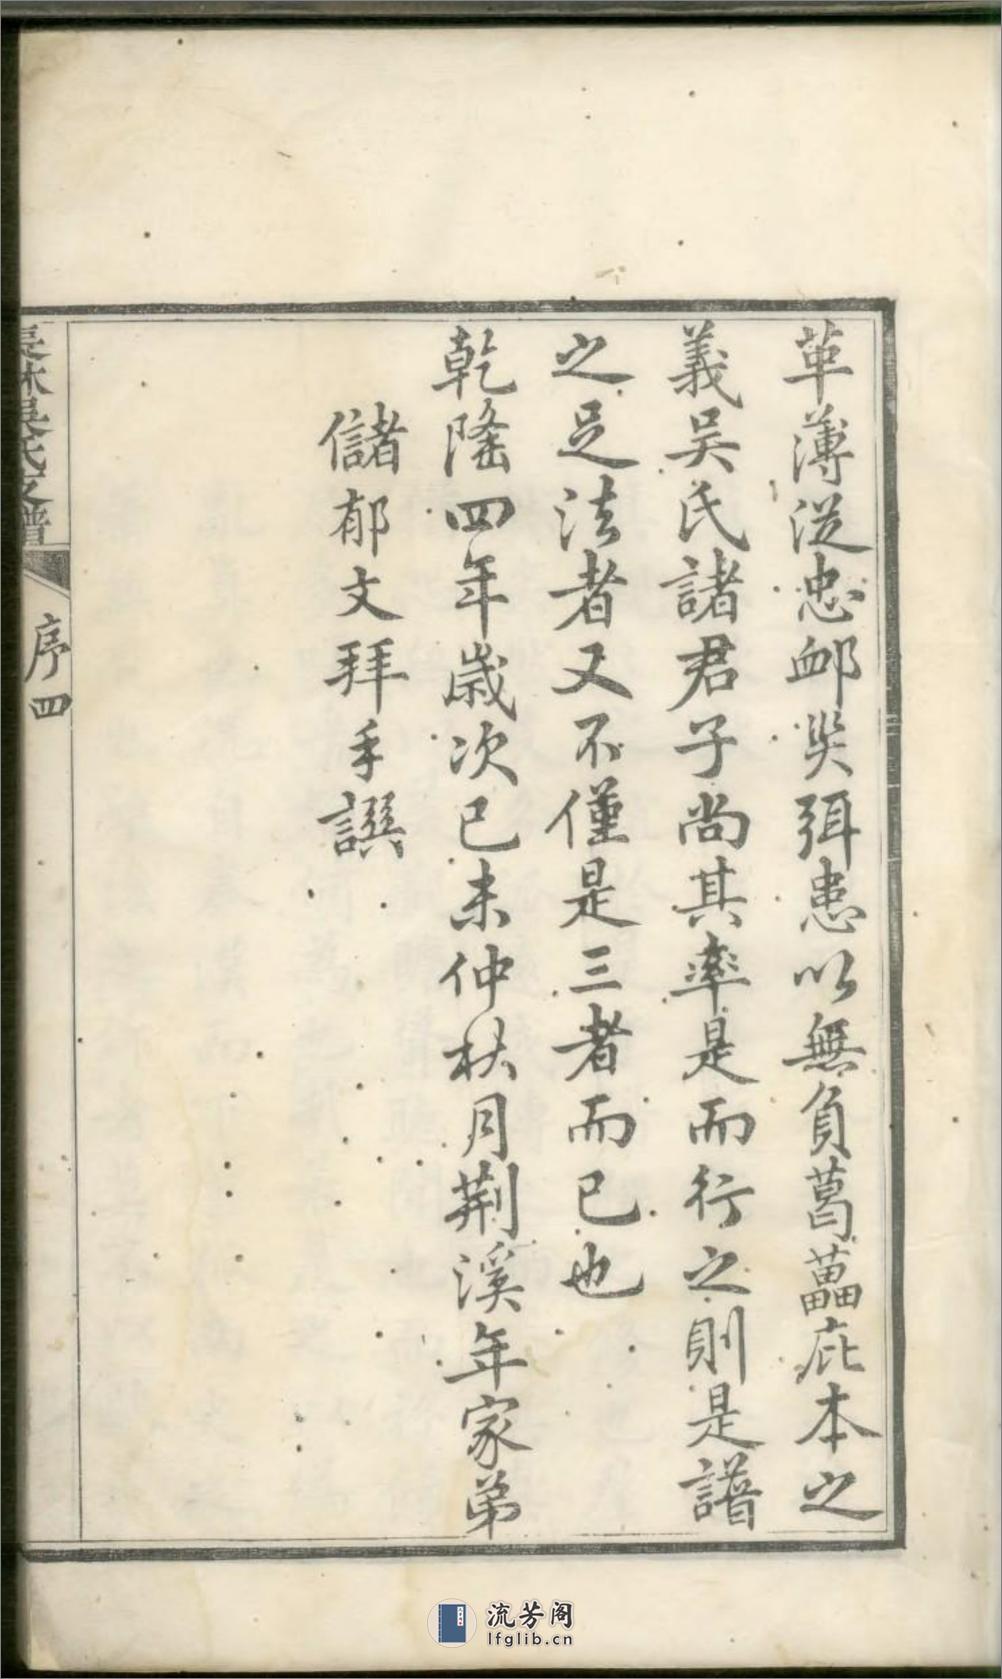 革薄從忠邮災弭患以無負葛藟庇本之
義吴氏諸君子尚其率是而行之則是譜
之足法者又不僅是三者而已也
乾隆四年歲次己未仲秋月荆溪年家弟
儲郁文拜手譔
吴氏支譜
序 四
流芳阁
lfglib.cn